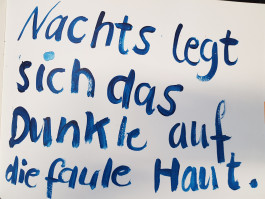 Nachts legt
sich das
Dunkle auf
die faule Haut.